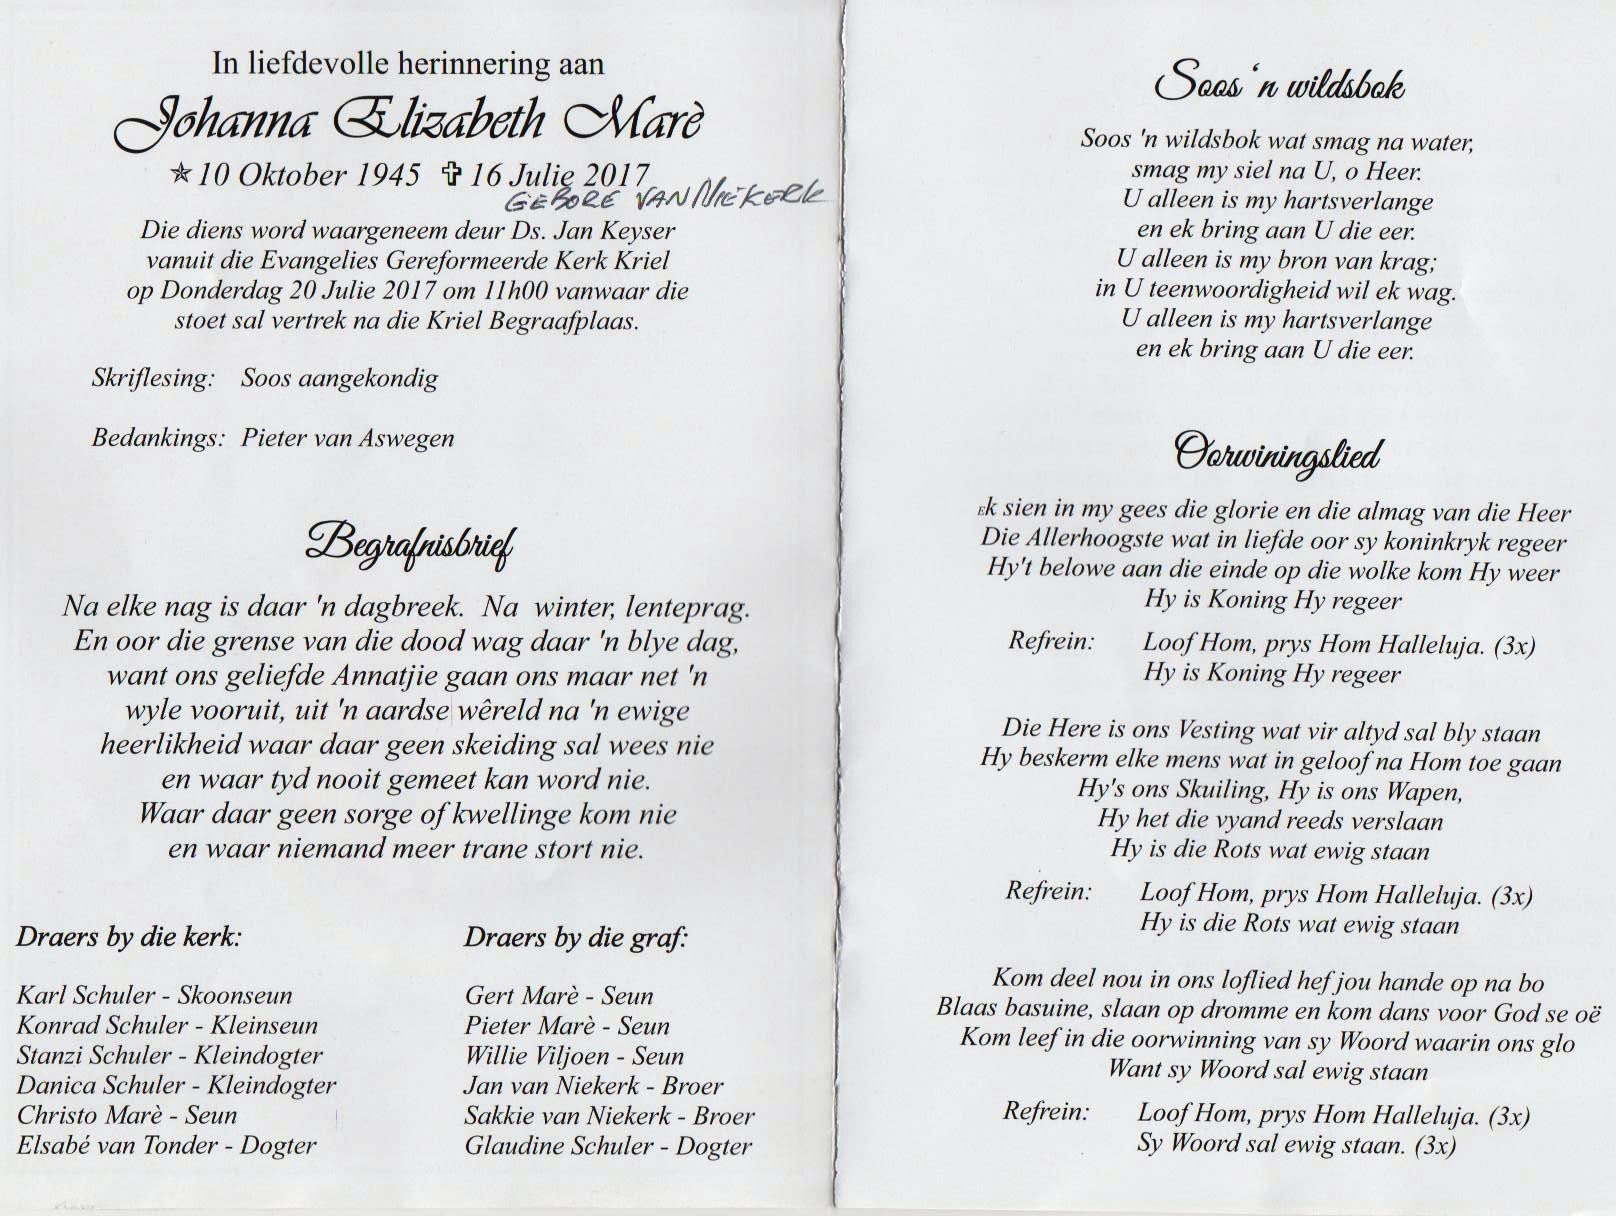 In liefdevolle herinnering aan
Johanna Elizabeth Marè
✯ 10 Oktober 1945 ✞ 16 Julie 2017
GEBORE VAN NIEKERK
Die diens word waargeneem deur Ds. Jan Keyser
vanuit die Evangelies Gereformeerde Kerk Kriel
op Donderdag 20 Julie 2017 om 11h00 vanwaar die
stoet sal vertrek na die Kriel Begraafplaas.
Skriflesing: Soos aangekondig
Bedankings: Pieter van Aswegen
Begrafnisbrief
Na elke nag is daar 'n dagbreek. Na winter, lenteprag.
En oor die grense van die dood wag daar 'n blye dag,
want ons geliefde Annatjie gaan ons maar net 'n
wyle vooruit, uit 'n aardse wêreld na 'n ewige
heerlikheid waar daar geen skeiding sal wees nie
en waar tyd nooit gemeet kan word nie.
Waar daar geen sorge of kwellinge kom nie
en waar niemand meer trane stort nie.
Draers by die kerk:
Karl Schuler - Skoonseun
Konrad Schuler - Kleinseun
Stanzi Schuler - Kleindogter
Danica Schuler - Kleindogter
Christo Marè - Seun
Elsabé van Tonder - Dogter
Draers by die graf:
Gert Marè - Seun
Pieter Marè - Seun
Willie Viljoen - Seun
Jan van Niekerk - Broer
Sakkie van Niekerk - Broer
Glaudine Schuler - Dogter
Soos 'n wildsbok
Soos 'n wildsbok wat smag na water,
smag my siel na U, o Heer.
U alleen is my hartsverlange
en ek bring aan U die eer.
U alleen is my bron van krag;
in U teenwoordigheid wil ek wag.
U alleen is my hartsverlange
en ek bring aan U die eer.
Oorwiningslied
Ek sien in my gees die glorie en die almag van die Heer
Die Allerhoogste wat in liefde oor sy koninkryk regeer
Hy't belowe aan die einde op die wolke kom Hy weer
Hy is Koning Hy regeer
Refrein: Loof Hom, prys Hom Halleluja. (3x)
Hy is Koning Hy regeer
Die Here is ons Vesting wat vir altyd sal bly staan
Hy beskerm elke mens wat in geloof na Hom toe gaan
Hy's ons Skuiling, Hy is ons Wapen,
Hy het die vyand reeds verslaan
Hy is die Rots wat ewig staan
Refrein: Loof Hom, prys Hom Halleluja. (3x)
Hy is die Rots wat ewig staan
Kom deel nou in ons loflied hef jou hande op na bo
Blaas basuine, slaan op dromme en kom dans voor God se oë
Kom leef in die oorwinning van sy Woord waarin ons glo
Want sy Woord sal ewig staan
Refrein: Loof Hom, prys Hom Halleluja. (3x)
Sy Woord sal ewig staan. (3x)